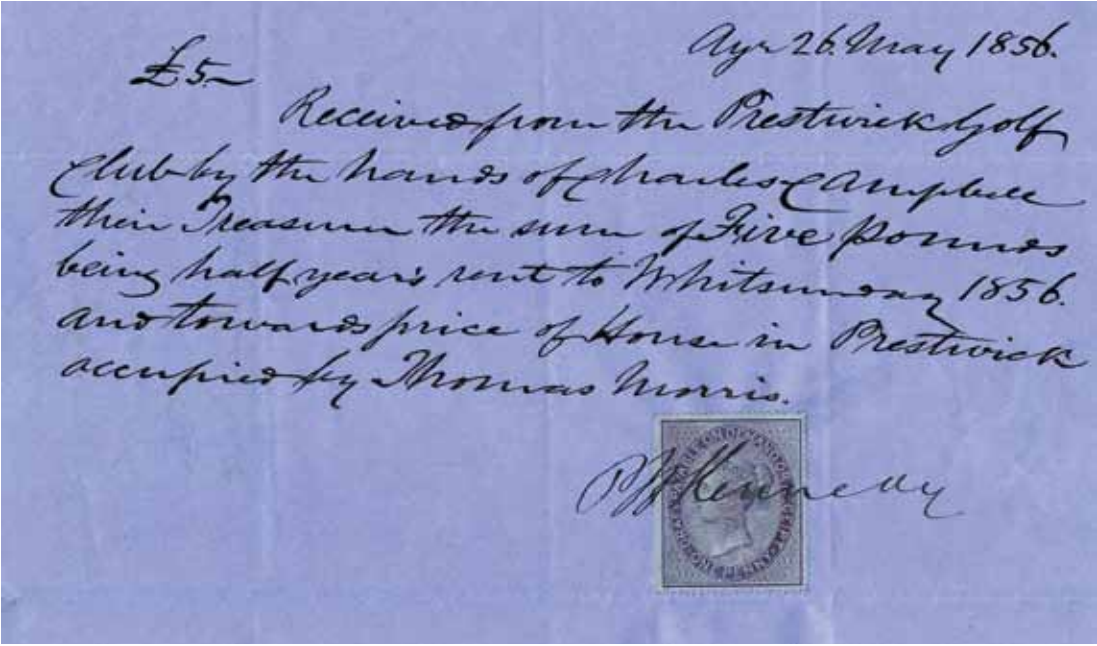 Ayr 26. May 1856.
£5~
Received from the Prestwick Golf
Club by the hands of Charles Campbell
their Treasurer the sum of Five pounds
being half year's rent to Whitsunday 1856.
and towards price of House in Prestwick
occupied by Thomas Morris.
Kennedy
DRAFT PAYABLE ON DEMAND OR RECEIPT ONE PENNY